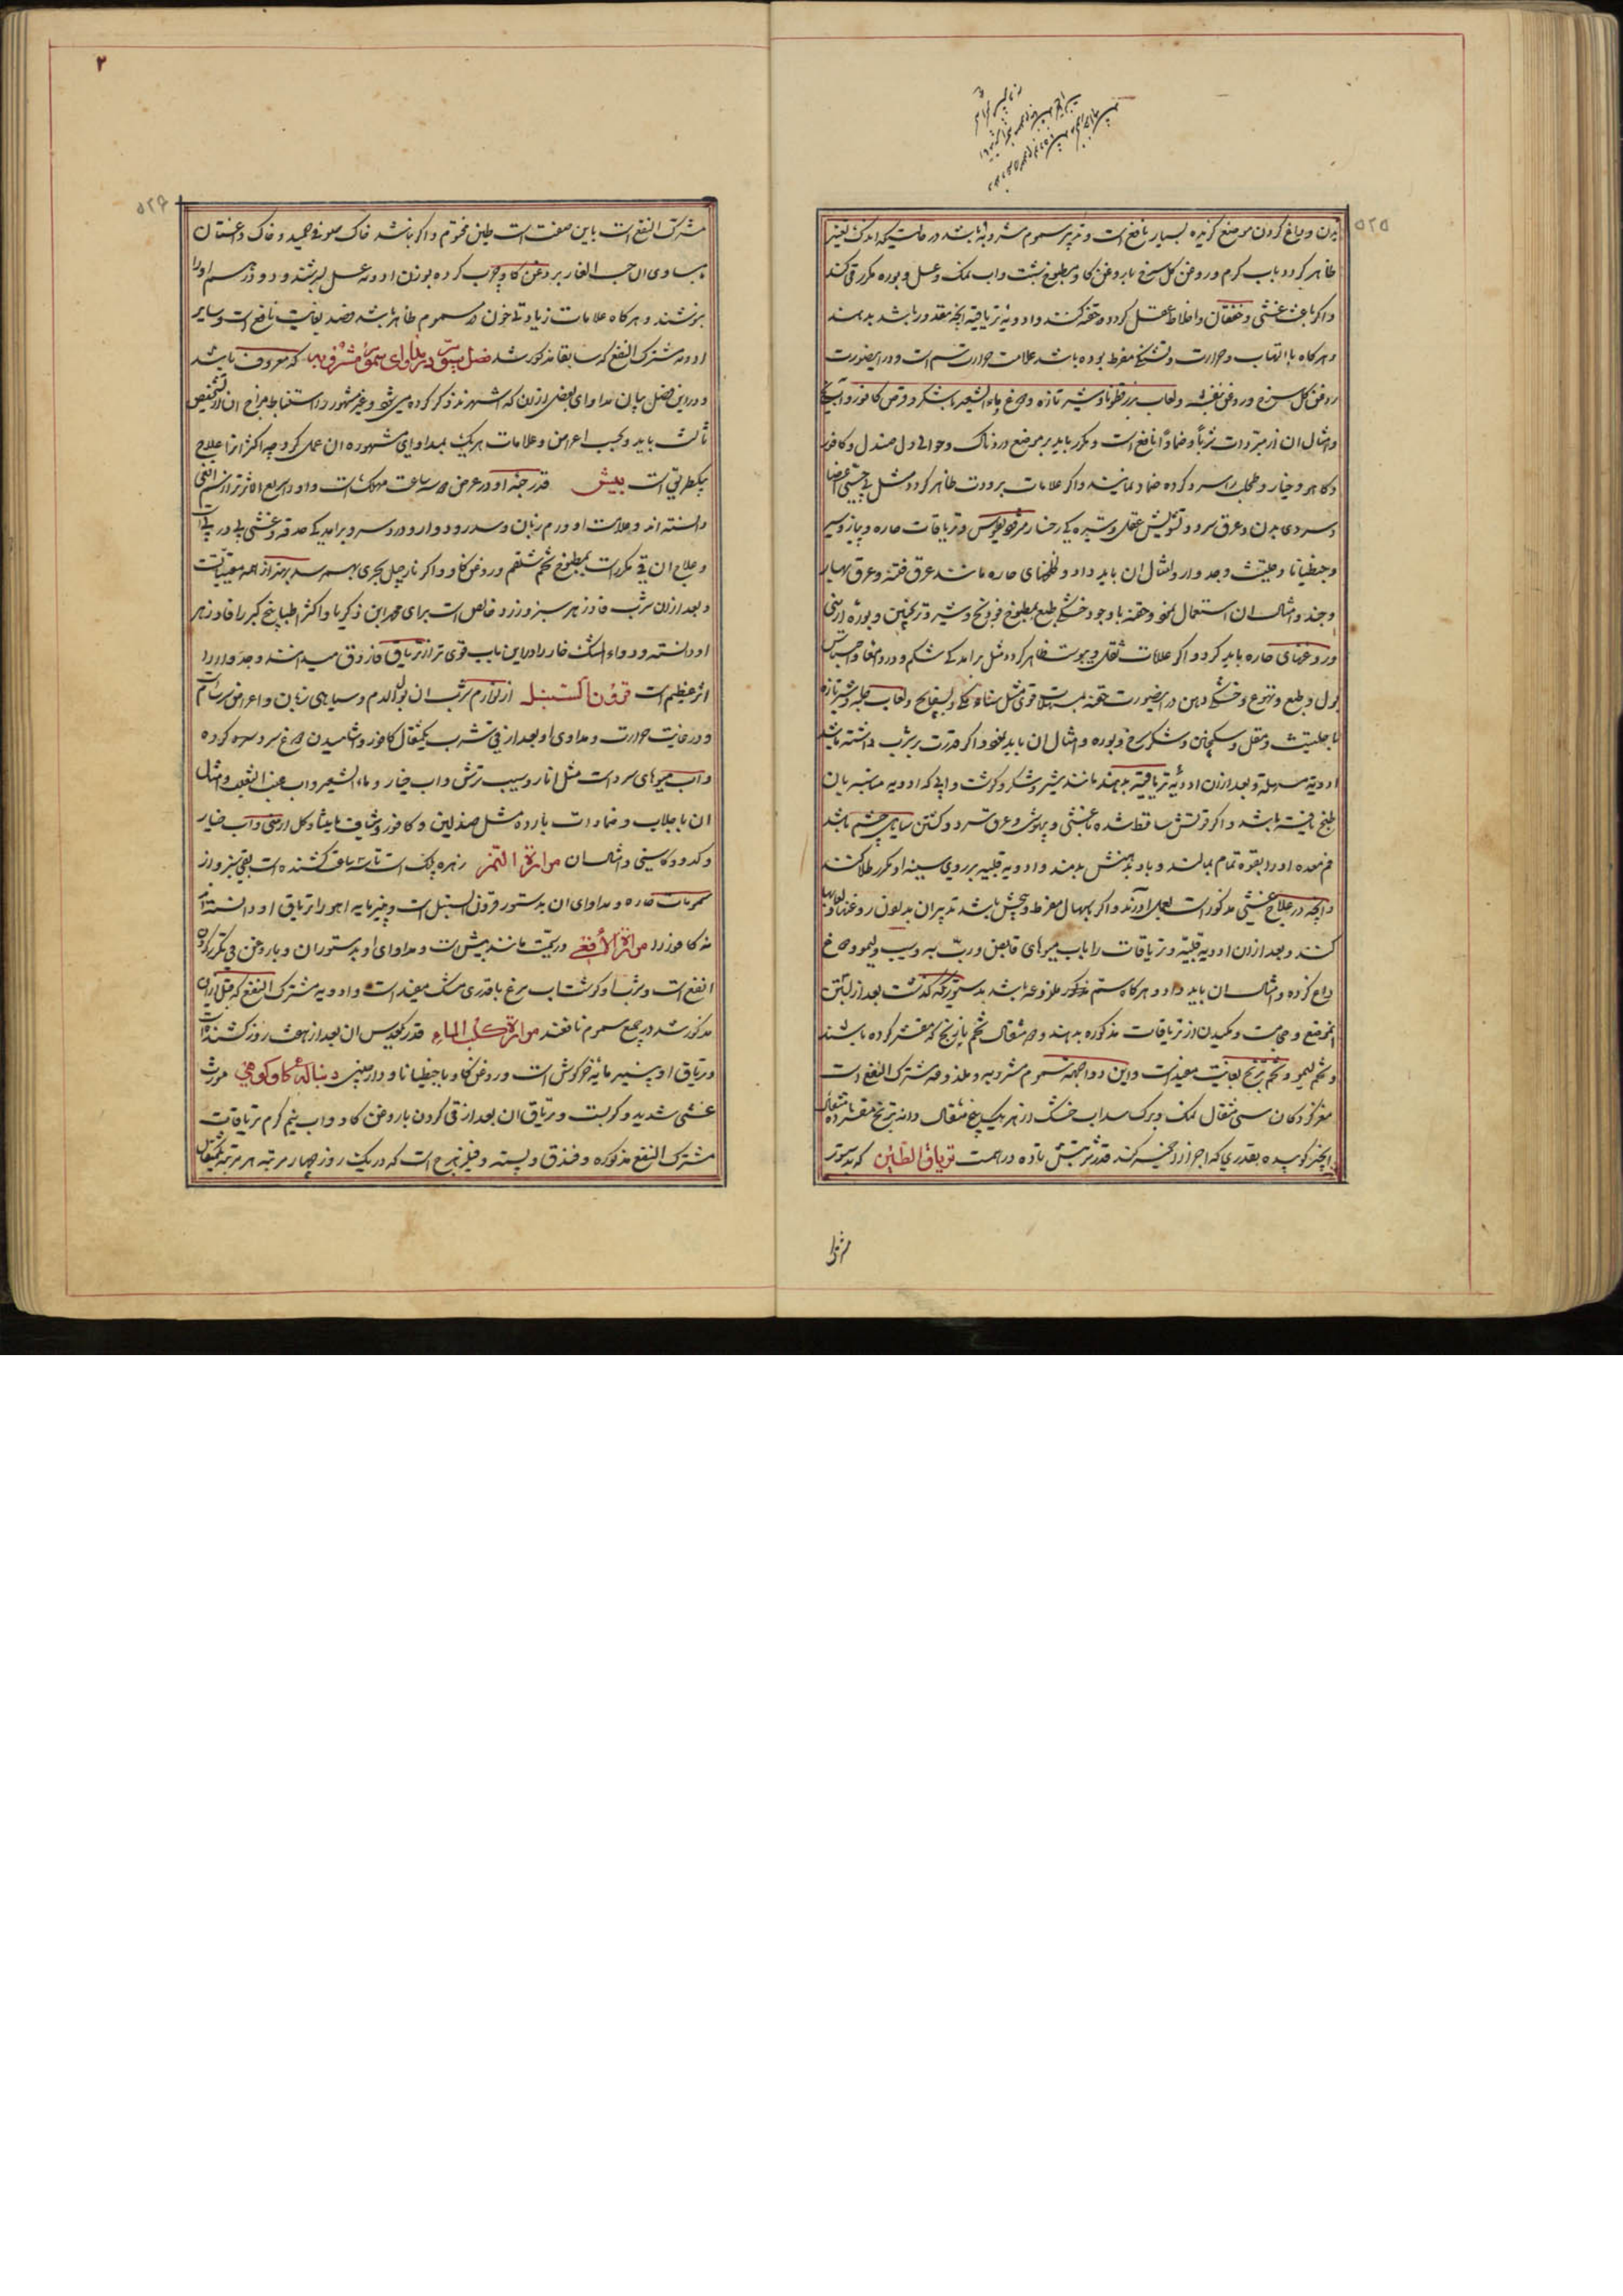 ۵۲۵
بدن و داغ کردن موضع گزیده بسیار نافع است و تدبیر سموم مشروبه باشد در حالتیکه اندک تغییر
ظاهر کردد باب کرم و روغن کل سرخ یا بروغن کاو و مطبوخ شبت و اب نمک و عسل و بوره مکرر قی کند
و اکر باعث غشی و خفقان و اختلاط عقل کردد حقنه کنند و ادویه تریاقیه انچه مقدور باشد بدهند
و هرکاه با التهاب و حرارت و تشنکی مفرط بوده باشد علامت حرارت سم است و در اینصورت
روغن کل سرخ و روغن بنفشه و لعاب بزرقطونا و شیر تازه و دوغ و ماء الشعیر با شکر و قرص کافور و اب یخ
و امثال ان از مبردات شربا و ضمادا نافع است و مکرر باید بر موضع دردناک و حوالی دل صندل و کافور
و کاهو و خیار و طحلب سرد کرده ضماد نمایند و اکر علامات برودت ظاهر کردد مثل بی حسی اعضا
و سردی بدن و عرق سرد و تشویش عقل و تیره کی رخسار مثرودیطوس و تریاقات حاره و پیاز و سیر
و جنطیانا و حلتیت و جدوار و امثال ان باید داد و طلاهای حاره مانند عرق فتنه و عرق بهار
و جند و امثال ان استعمال نمود و حقنه با وجود خشکی طبع بمطبوخ فودنج و شیر و ترنجبین و بوره ارمنی
و روغنهای حاره باید کرد و اکر علامات ثقل و یبوست ظاهر کردد مثل برامدکی شکم و درد امعا و احتباس
بول و طبع و تهوع و خشکی دهن در اینصورت حقنه بمسهلات قوی مثل سناء مکی و بسفایج و لعاب حلبه و شیر تازه
با حلتیت و مقل و سکبینج و شکر سرخ و بوره و امثال ان باید نمود و اکر قدرت بر شرب داشته باشد
ادویه مسهله و بعد از ان ادویه تریاقیه بدهند مانند شیر و شکر و کوشت و ابی که ادویه مناسبه بان
طبخ یافته باشد و اکر قوتش ساقط شده با غشی و بیهوشی و عرق سرد و کشتن سیاهی چشم باشد
فم معده او را بقوه تمام بمالند و باد بدهنش بدمند و ادویه قلبیه بر روی سینه او مکرر طلا کنند
و انچه در علاج غشی مذکور است بعمل اورند و اکر باسهال مفرط و پیچش باشد تدبیر ان بدون روغنها و لعابها
کنند و بعد از ان ادویه قلبیه و تریاقات را باب میوهای قابض و رب به و سیب و لیمو و دوغ
داغ کرده و امثال ان باید داد و هرکاه سم مذکور ملذوعه باشد بدستوریکه کذشت بعد از بستن
انموضع و حجامت و مکیدن از تریاقات مذکوره بدهند و دو مثقال تخم بادرنج که مقشر کرده باشند
و تخم لیمو و تخم ترنج بغایت مفید است و این دوا جهة سموم مشروبه و ملذوعه مشترک النفع است
مغز کردکان سی مثقال نمک و برک سداب خشک از هر یک پنج مثقال دانه ترنج مقشر ده مثقال
انجیر کوبیده بقدری که اجزا را خمیر کند قدر شربتش تا ده درهمست تریاق الطین که بدستور
مشترک
۲
۵۲۶
مشترک النفع است باین صفت است طین مختوم و اکر نباشد خاک صوفی حمید و خاک داغستان
مساوی ان حب الغار بروغن کاو چرب کرده بوزن ادویه عسل بسرشند و دو درهم او را
بنوشند و هرکاه علامات زیادتی خون در مسموم ظاهر باشد فصد بغایت نافع است و سایر
ادویه مشترک النفع که سابقا مذکور شد فصل سیوم در مداوای سموم مشروبه که معروف باشد
و در این فصل بیان مداوای بعضی از ان که اشهرند ذکر کرده میشود و غیر مشهور را استنباط مزاج ان از تشخیص
ثالث باید و بحسب اعراض و علامات هر یک بمداوای مشهوره ان عمل کرد چه اکثر انرا علاج
یکطریق است بیش قدر حبه او در عرض سه ساعت مهلک است و او را سریع الاثر تر از سم افعی
دانسته اند و علامت او ورم زبان و سدر و دوار و درد سر و برامدکی حدقه و غشی پی در پی است
و علاج ان قی مکرر است بمطبوخ تخم شلغم و روغن کاو و اکر نارجیل بحری بهم رسد بهتر از همه مقیئات است
و بعد از ان شرب فادزهر سبز و زرد خالص است برای محمد ابن ذکریا و اکثر اطبا بیخ کبر را فادزهر
او دانسته و دواء المسک حار را در این باب قوی تر از تریاق فاروق میدانند و جدوار را
اثر عظیم است قرون السنبل از لوازم شرب ان بول الدم و سیاهی زبان و اعراض سرسام است
و در غایت حرارت و مداوی او بعد از قی شرب یکمثقال کافور و اشامیدن دوغ سرد سوده کرده
و اب میوهای سرد است مثل انار و سیب ترش و اب خیار و ماء الشعیر و اب عنب الثعلب و امثال
ان با جلاب و ضمادات بارده مثل صندلین و کافور و شیاف مامیثا و کل ارمنی و اب خیار
و کدو و کاسنی و امثال ان مرارة النمر زهره پلنک است تا سه ساعت کشنده است بقی سبز و از
سمومات حاره و مداوای ان بدستور قرون السنبل است و پنیر مایه اهو را تریاق او دانسته اند
نه کافور را مرارة الافعی در سمیت مانند بیش است و مداوای او بدستور ان و با روغن قی مکرر کردن
انفع است و شراب و کوشتاب مرغ با قدری مشک مفید است و ادویه مشترک النفع که قبل از ان
مذکور شد در جمع سموم نافعند مرارة کلب الماء قدر عدس ان بعد از هفت روز کشنده است
و تریاق او پنیر مایه خرکوش است و روغن کاو با جنطیانا و دارچینی دنباله کاو کوهی مورث
غشی شدید و کربست و تریاق ان بعد از قی کردن با روغن کاو و اب نیم کرم تریاقات
مشترک النفع مذکوره و فندق و پسته و فیلزهرج است که در یک روز چهار مرتبه هر مرتبه یکمثقال